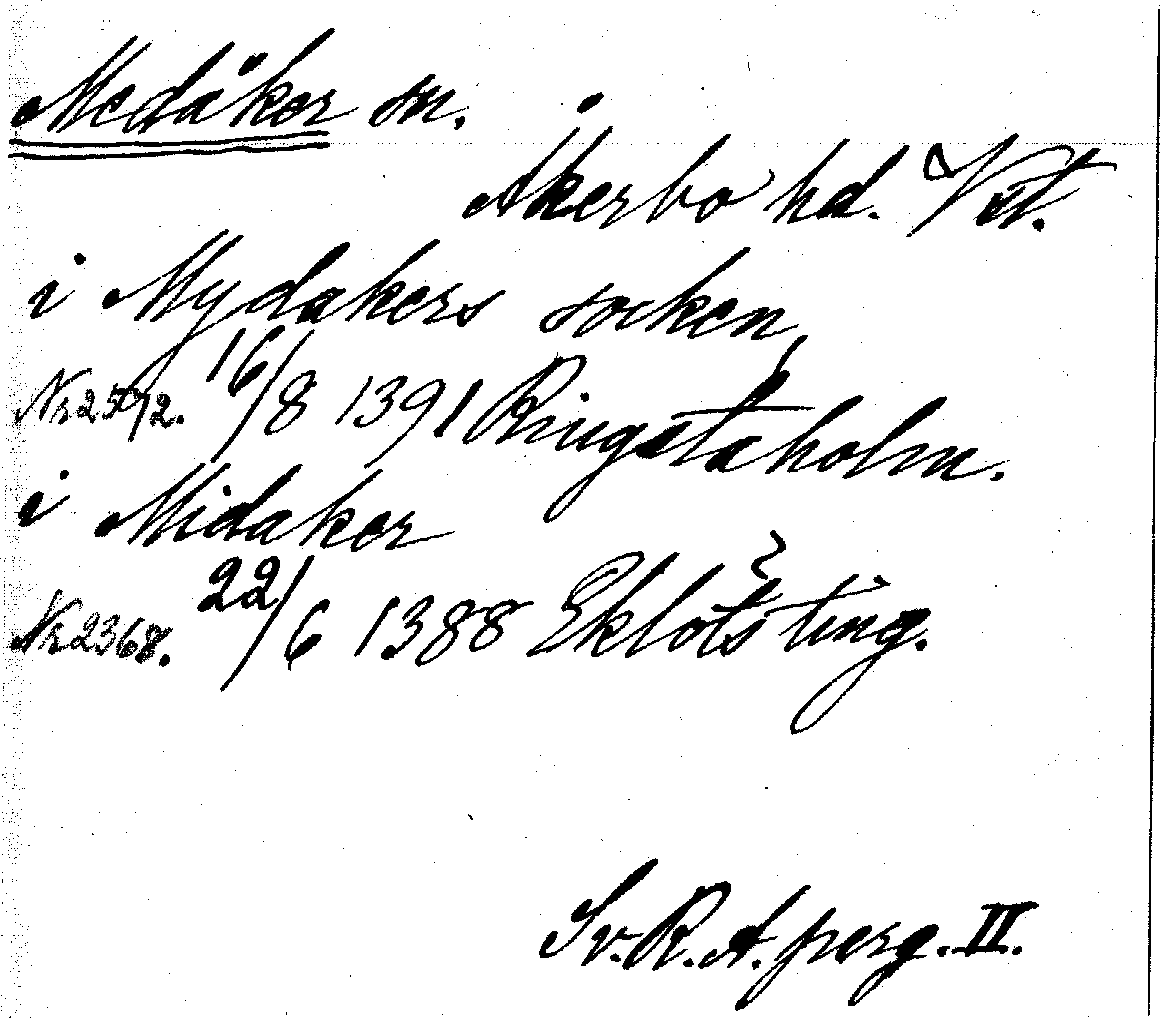 Medåker sn.
Åkerbo hd. Vstm.
i Mydakers socken
Nr 2572. 16/8 1391 Ringstaholm.
i Midaker
Nr 2368. 22/6 1388 Eklöts ting.
Sv. R. A. perg. II.